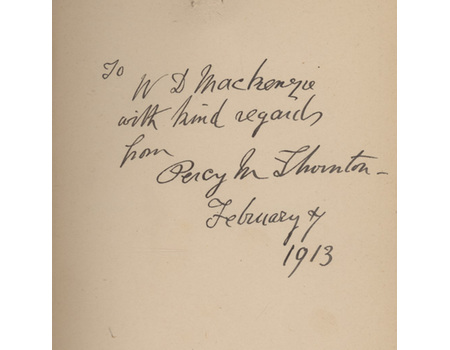 To
W D Mackenzie
with kind regards
from
Percy M Thornton -
February
1913